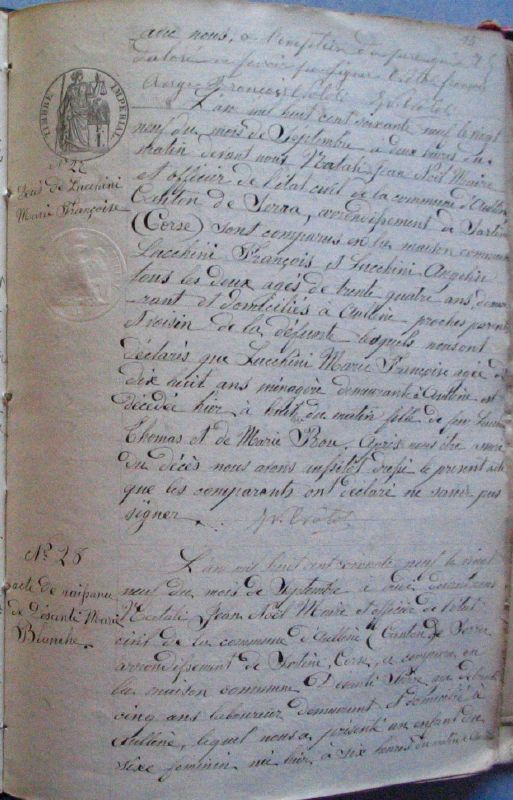 avec nous, à l'exception
déclaré ne savoir pas signer
L'an mil huit cent soixante neuf le vingt
neuf du mois de Septembre à deux heures du
matin devant nous Jean Noël Maire
et officier de l'état civil de la commune d'Aullène
Canton de Serra, arrondissement de Sartène
(Corse) sont comparus en la maison commune
Lucchini François, et Lucchini
tous les deux agés de trente quatre ans, demeu
rant et domiciliés à Aullène proches parents
et voisin de la défunte lesquels nous ont
déclarés que Lucchini Marie Françoise agée de
dix huit ans ménagère demeurante à Aullène est
décédée hier à huit du matin fille de feu
Thomas et de Marie Après nous être assuré
du décès nous avons aussitôt dressé le présent acte
que les comparants ont déclaré ne savoir pas
signer.
TIMBRE IMPERIAL
N° 27
décès de Lucchini
Marie Françoise
N° 28
acte de naissance
de Désanti Marie
Blanche
L'an mil huit cent soixante neuf le vingt
neuf du mois de Septembre à
Jean Noël Maire et officier de l'état
civil de la commune d'Aullène Canton de Serra
arrondissement de Sartène, Corse, a comparu en
la maison commune Désanti
cinq ans laboureur demeurant et domicilié à
Aullène, lequel nous a présenté un enfant du
sexe féminin né hier à six heures du matin